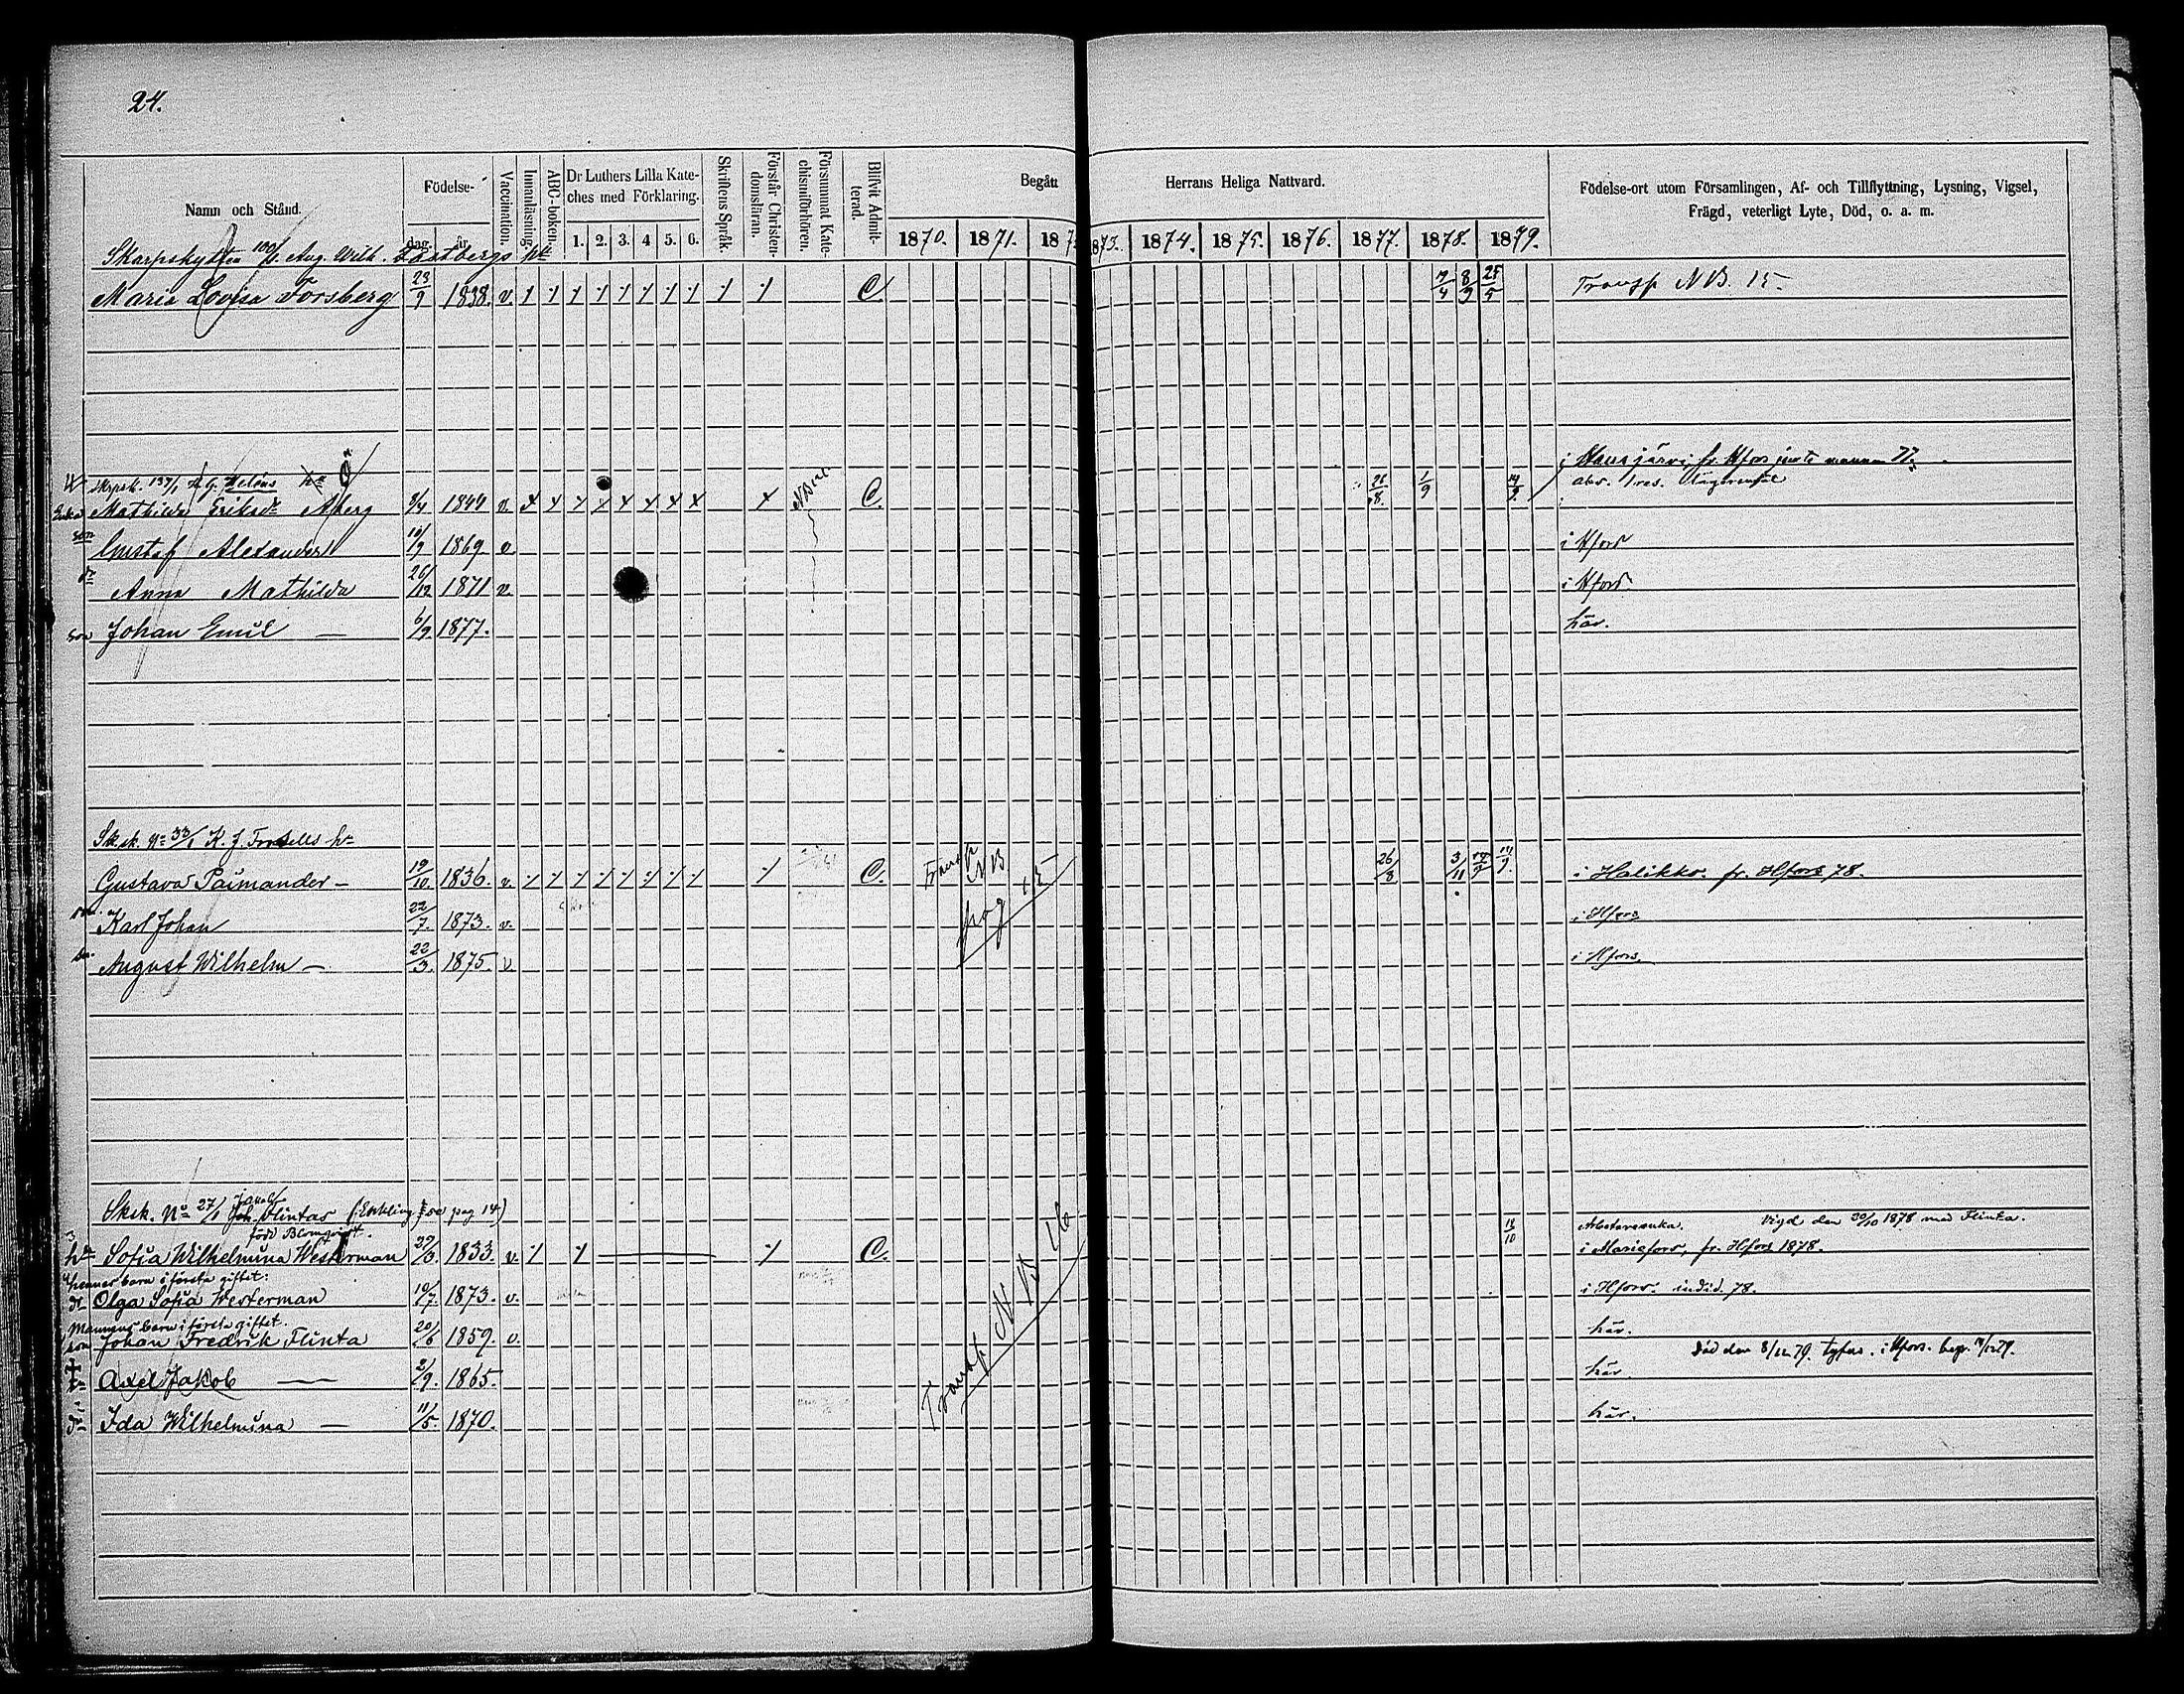 24.
Namn och Stånd.
Födelse-
dag. år.
Vaccination.
Innanläsning.
ABC-boken.
Dr Luthers Lilla Kateches med Förklaring.
1. 2. 3. 4 5. 6.
Skriftens Språk.
Förstår Christendomsläran.
Försummat Katechismiförhören.
Blifvit Admitterad.
Begått Herrans Heliga Nattvard.
1870. 1871. 187 1873. 1874. 1875. 1876. 1877. 1878. 1879.
Födelse-ort utom Församlingen, Af- och Tillflyttning, Lysning, Vigsel,
Frägd, veterligt Lyte, Död, o. a. m.
Skarpskytten 100/1. Aug. Wilh.
Maria Lovisa Forsberg 23/9 1838. v. C 7/4 8/9 25/5 Transp NB. 15.
i Hausjärvi, fr. Hfors
Skrpsk. 139/1
Mathilda Eriksdr Åberg 8/4 1844 v. C. 26/8. 1/9 14/9
son Gustaf Alexander 10/9 1869 v. i Hfors
dr Anna Mathilda 26/12 1871 v. i Hfors.
son Johan Emil — 6/9 1877. här.
Sk.sk. No 33/1 K. J. Forsells hu
Gustava Paimander — 19/10. 1836. v. C. Transp NB pag 15 26/8 3/11 14/9. i Halikko. fr. Hfors 78.
son Karl Johan 22/7. 1873. v. i Hfors
August Wilhelm — 22/3. 1875. v i Hfors.
Sksk. No 27/1 Jakob Joh. Flintas (: Enkling. se pag 14)
född Blomqvist.
Arbetareenka. Vigd den 20/10 1878 med Flinta.
hu Sofia Wilhelmina Westerman 27/3. 1833. v. C. 14/10 i Mariefors, fr. Hfors 1878.
hennes barn i första giftet:
dr Olga Sofia Westerman 10/7. 1873. v. i Hfors. 78.
Mannens barn i första giftet.
son Johan Fredrik Flinta 20/6 1859. v. här.
Död den 8/12 79. tyfus. i Hfors. begr.
Axel Jakob — 2/9. 1865. här
dr Ida Wilhelmina — 11/5. 1870. här.
Transp N. B. 16